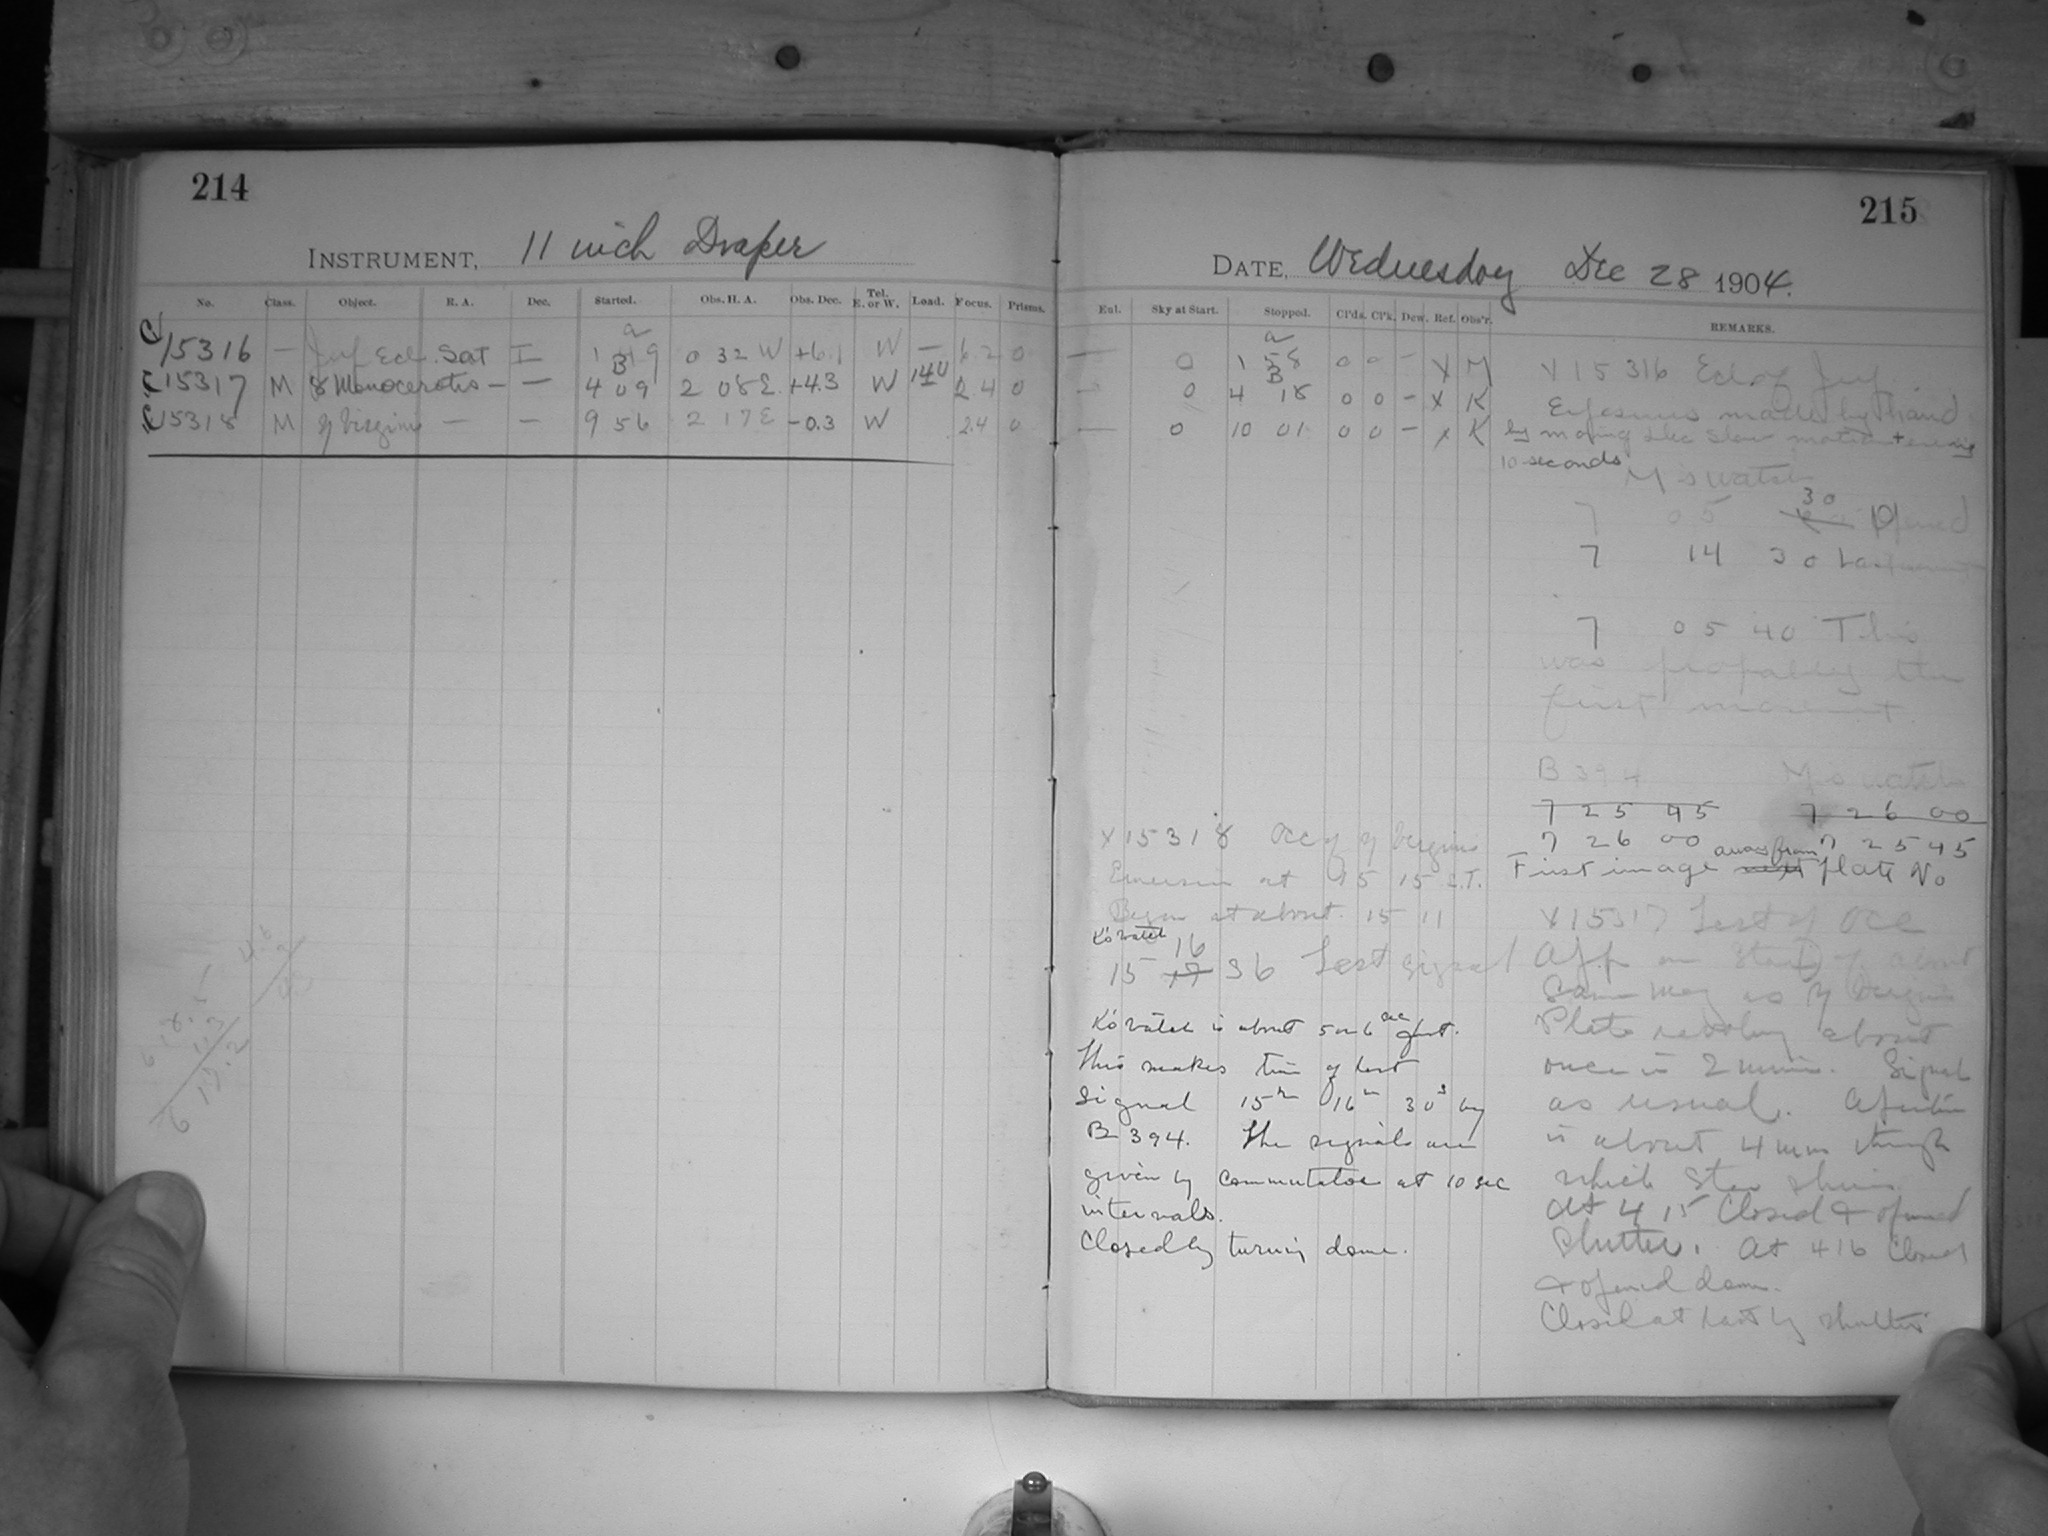 214
INSTRUMENT, 11 inch Draper
No. Class. Object. R. A. Dec. Started. Obs. H. A. Obs. Dec. Tel. E. or W. Load. Focus. Prisms.
C 15316 — Jup Ecl. Sat I — a 1 49 0 32 W +6.1 W — 6.2 0
C 15317 M 8 Monocerotis — — B 4 09 2 08 E +4.3 W 140 2.4 0
C 15318 M γ Virginis — — 9 56 2 17 E -0.3 W 2.4 0
215
DATE, Wednesday Dec 28 1904.
Eul. Sky at Start. Stopped. Cl'ds. Cl'k. Dew. Ref. Obs'r. REMARKS.
— 0 a 1 58 0 0 — X M
— 0 B 4 18 0 0 — X K
— 0 10 01 0 0 — X K
X 15316 Ecl. of Jup.
Exposures made by hand
by moving dec slow motion + every
10 seconds
M's watch
7 05 30 Opened
7 14 30 Last movement
7 05 40 This
was probably the
first movement
B 394 M's watch
7 25 45 7 26 00
7 26 00 7 25 45
First image away from plate No
X 15317 Test of Occ
App on star of about
same mag as γ Virginis
Plate revolving about
once in 2 min. Signals
as usual. Aperture
is about 4 mm through
which star shines.
At 4 15 Closed & opened
shutter. At 4 16 closed
& opened dome.
Closed at last by shutter
X 15318 Occ of γ Virginis
Emersion at 15 15 S.T.
Began at about 15 11
K's watch
15 16 36 Last signal
K's watch is about 5 or 6 sec fast.
This makes time of last
signal 15h 16m 30s by
B 394. The signals are
given by commutator at 10 sec
intervals.
Closed by turning dome.